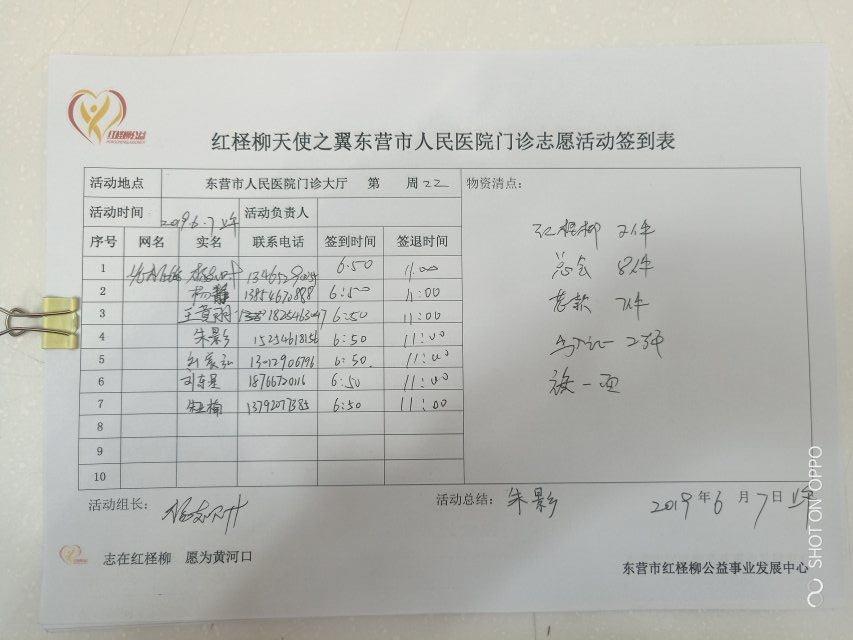 红柽柳公益
红柽柳天使之翼东营市人民医院门诊志愿活动签到表
活动地点 东营市人民医院门诊大厅 第 周 22 物资清点：
活动时间 2019.6.7 上午 活动负责人
序号 网名 实名 联系电话 签到时间 签退时间
1 6:50 11:00
2 杨静 13854670888 6:50 11:00
3 18254630 6:50 11:00
4 朱影 15254618156 6:50 11:00
5 6:50 11:00
6 18766720116 6:50 11:00
7 13792077385 6:50 11:00
8
9
10
红柽柳 2件
总会 8件
老款 7件
旗一面
活动组长：
活动总结： 朱影 2019年6月7日上午
志在红柽柳 愿为黄河口
东营市红柽柳公益事业发展中心
SHOT ON OPPO